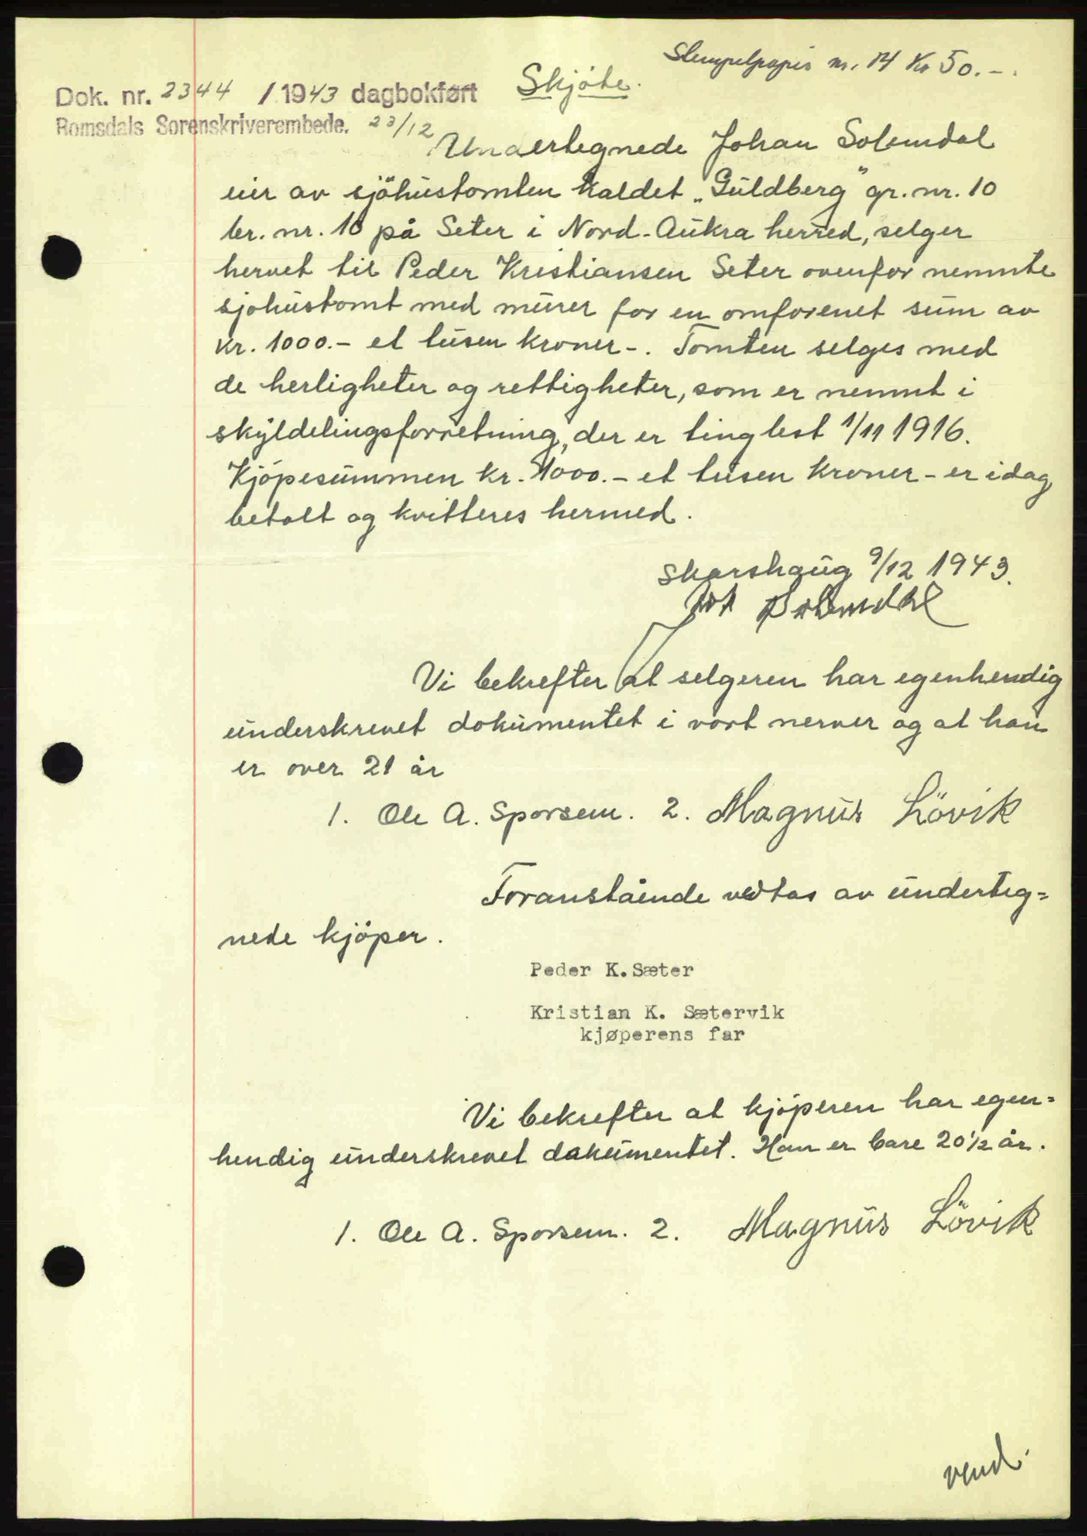 Stempelpapir nr. 14 Kr 50.-.
Skjöte.
Dok. nr. 2344 / 1943 dagbokført
Romsdals Sorenskriverembede. 23/12
Undertegnede Johan Solemdal
eier av sjöhustomten kaldet "Guldberg" gr. nr. 10
br. nr. 16 på Seter i Nord-Aukra herred, selger
hervet til Peder Kristiansen Seter ovenfor nemnte
sjohustomt med murer for en omforenet sum av
kr. 1000.- et tusen kroner-. Tomten selges med
de herligheter og rettigheter, som er nemnt i
skyldelingsforretning, der er tinglest 1/11 1916.
Kjöpesummen kr. 1000.- et tusen kroner - er idag
betalt og kvitteres hermed.
Skarshaug 9/12 1943.
Joh Solemdal
Vi bekrefter at selgeren har egenhendig
underskrevet dokumentet i vort nerver og at han
er over 21 år
1. Ole A. Sporsem. 2. Magnus Lövik
Foranstående vedtas av underteg=
nede kjöper.
Peder K. Sæter
Kristian K. Sætervik
kjøperens far
Vi bekrefter at kjöperen har egen=
hendig underskrevet dokumentet. Han er bare 20 1/2 år.
1. Ole A. Sporsem. 2. Magnus Lövik
vend.